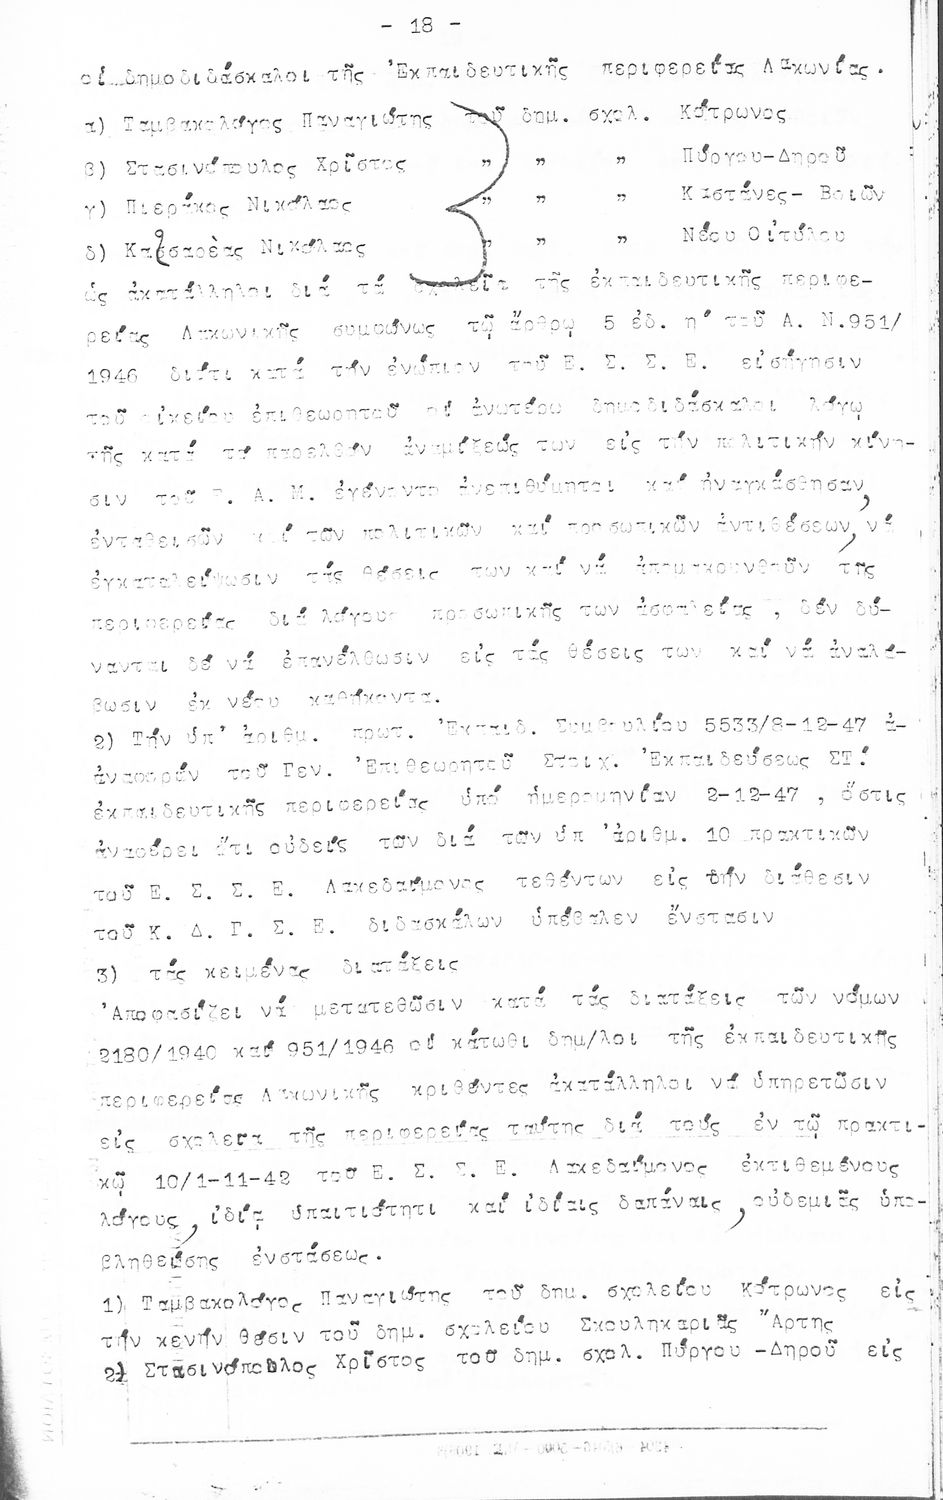 - 18 -
οἱ δημοδιδάσκαλοι τῆς Ἐκπαιδευτικῆς περιφερείας Λακωνίας.
α) Ταμβακολόγος Παναγιώτης τοῦ δημ. σχολ. Κότρωνος
β) Στασινόπουλος Χρῖστος " " " Πύργου-Δηροῦ
γ) Πιεράκος Νικόλαος " " " Καστάνες- Βοιῶν
δ) Κασσαρέας Νικόλαος " " " Νέου Οἰτύλου
ὡς ἀκατάλληλοι διά τά σχολεῖα τῆς ἐκπαιδευτικῆς περιφε-
ρείας Λακωνικῆς συμφώνως τῷ ἄρθρῳ 5 ἐδ. η' τοῦ Α. Ν.951/
1946 διότι κατά τήν ἐνώπιον τοῦ Ε. Σ. Σ. Ε. εἰσήγησιν
τοῦ οἰκείου ἐπιθεωρητοῦ οἱ ἀνωτέρω δημοδιδάσκαλοι λόγῳ
τῆς κατά τό παρελθόν ἀναμίξεώς των εἰς τήν πολιτικήν κίνη-
σιν τοῦ Ε. Α. Μ. ἐγένοντο ἀνεπιθύμητοι καί ἠναγκάσθησαν,
ἐνταθεισῶν καί τῶν πολιτικῶν καί προσωπικῶν ἀντιθέσεων, νά
ἐγκαταλείψωσιν τάς θέσεις των καί νά ἀπομακρυνθοῦν τῆς
περιφερείας διά λόγους προσωπικῆς των ἀσφαλείας , δέν δύ-
νανται δέ νά ἐπανέλθωσιν εἰς τάς θέσεις των καί νά ἀναλά-
βωσιν ἐκ νέου καθήκοντα.
2) Τήν ὑπ' ἀριθμ. πρωτ. Ἐκπαιδ. Συμβουλίου 5533/8-12-47 ἀ-
ἀναφοράν τοῦ Γεν. Ἐπιθεωρητοῦ Στοιχ. Ἐκπαιδεύσεως ΣΤ!
ἐκπαιδευτικῆς περιφερείας ὑπό ἡμερομηνίαν 2-12-47 , ὅστις
ἀναφέρει ὅτι οὐδείς τῶν διά τῶν ὑπ 'ἀριθμ. 10 πρακτικῶν
τοῦ Ε. Σ. Σ. Ε. Λακεδαίμονος τεθέντων εἰς τήν διάθεσιν
τοῦ Κ. Δ. Γ. Σ. Ε. διδασκάλων ὑπέβαλεν ἔνστασιν
3) τάς κειμένας διατάξεις
Ἀποφασίζει νά μετατεθῶσιν κατά τάς διατάξεις τῶν νόμων
2180/1940 καί 951/1946 οἱ κάτωθι δημ/λοι τῆς ἐκπαιδευτικῆς
περιφερείας Λακωνικῆς κριθέντες ἀκατάλληλοι νά ὑπηρετῶσιν
εἰς σχολεῖα τῆς περιφερείας ταύτης διά τούς ἐν τῷ πρακτι-
κῷ 10/1-11-42 τοῦ Ε. Σ. Σ. Ε. Λακεδαίμονος ἐκτιθεμένους
λόγους, ἰδίᾳ ὑπαιτιότητι καί ἰδίαις δαπάναις, οὐδεμιᾶς ὑπο-
βληθείσης ἐνστάσεως.
1) Ταμβακολόγος Παναγιώτης τοῦ δημ. σχολείου Κότρωνος εἰς
τήν κενήν θέσιν τοῦ δημ. σχολείου Σκουληκαριᾶς Ἄρτης
2) Στασινόπουλος Χρῖστος τοῦ δημ. σχολ. Πύργου -Δηροῦ εἰς